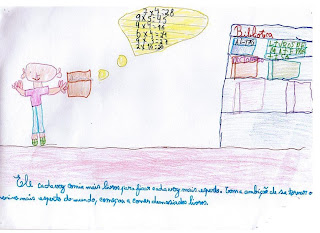 7 x 4 = 28
9 x 5 = 45
4 x 4 = 16
6 x 4 = 24
9 x 3 = 27
Biblioteca
Ele cada vez comia mais livros para ficar cada vez mais esperto. Com a ambição de se tornar o
menino mais esperto do mundo, começou a comer demasiados livros.